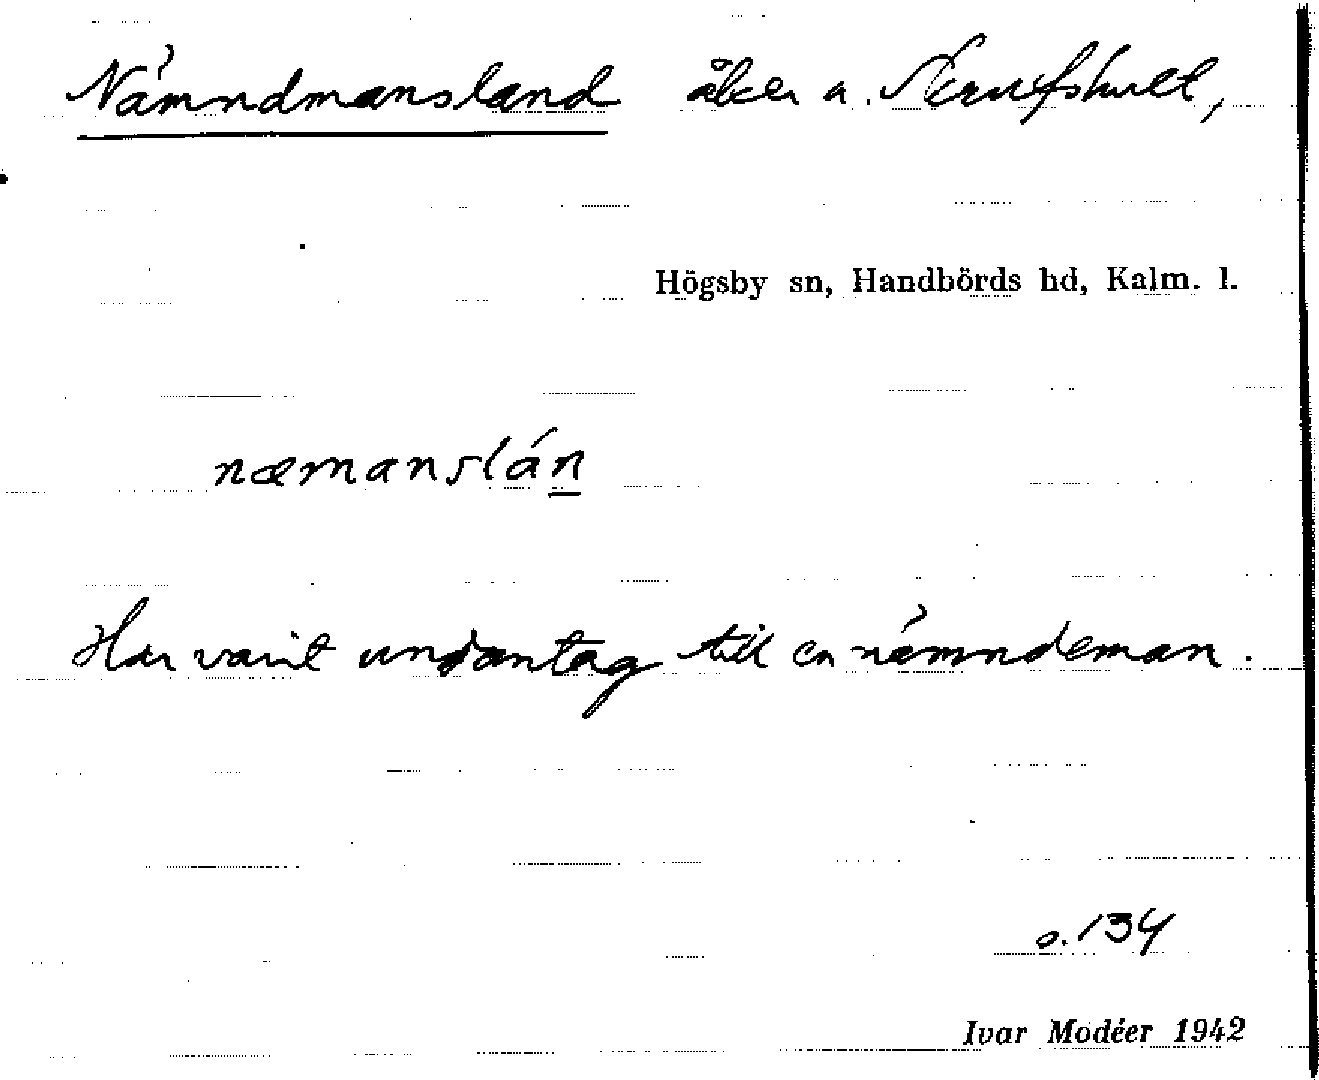 Nämndmansland åker a.
Högsby sn, Handbörds hd, Kalm. l.
næmanslán
Har varit undantag till en nämndeman.
s. 134
Ivar Modéer 1942